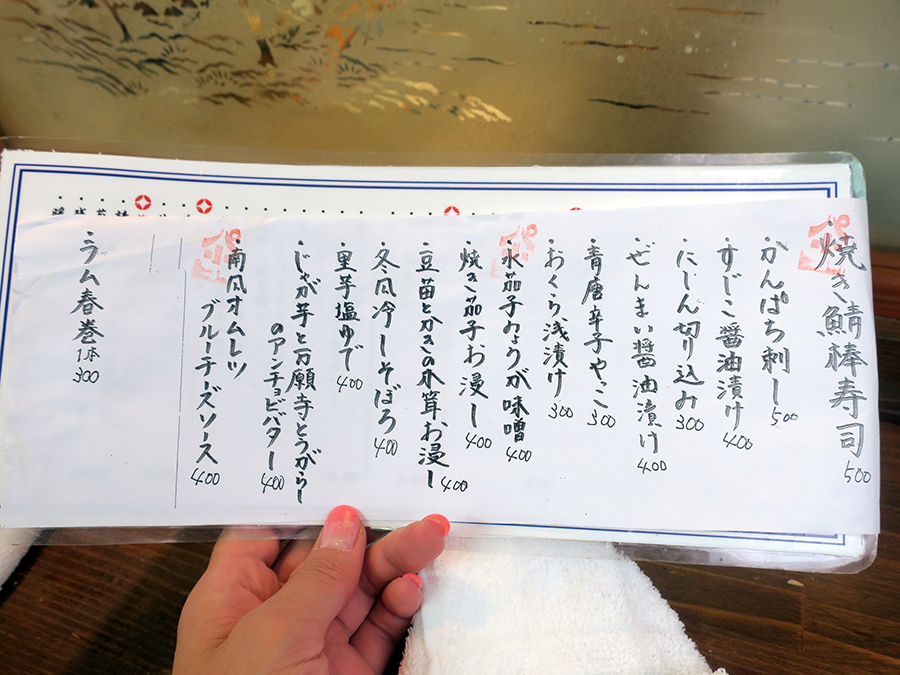 ・焼き鯖棒寿司 500
・かんぱち刺し 500
・すじこ醤油漬け 400
・にしん切り込み 300
・ぜんまい醤油漬け 400
・青唐辛子やっこ 300
・おくら浅漬け 300
・水茄子みょうが味噌 400
・焼き茄子お浸し 400
・豆苗とかきの木茸お浸し 400
・冬瓜冷しそぼろ 400
・里芋塩ゆで 400
・じゃが芋と万願寺とうがらし
のアンチョビバター 400
・南瓜オムレツ
ブルーチーズソース 400
・ラム春巻 1本 300